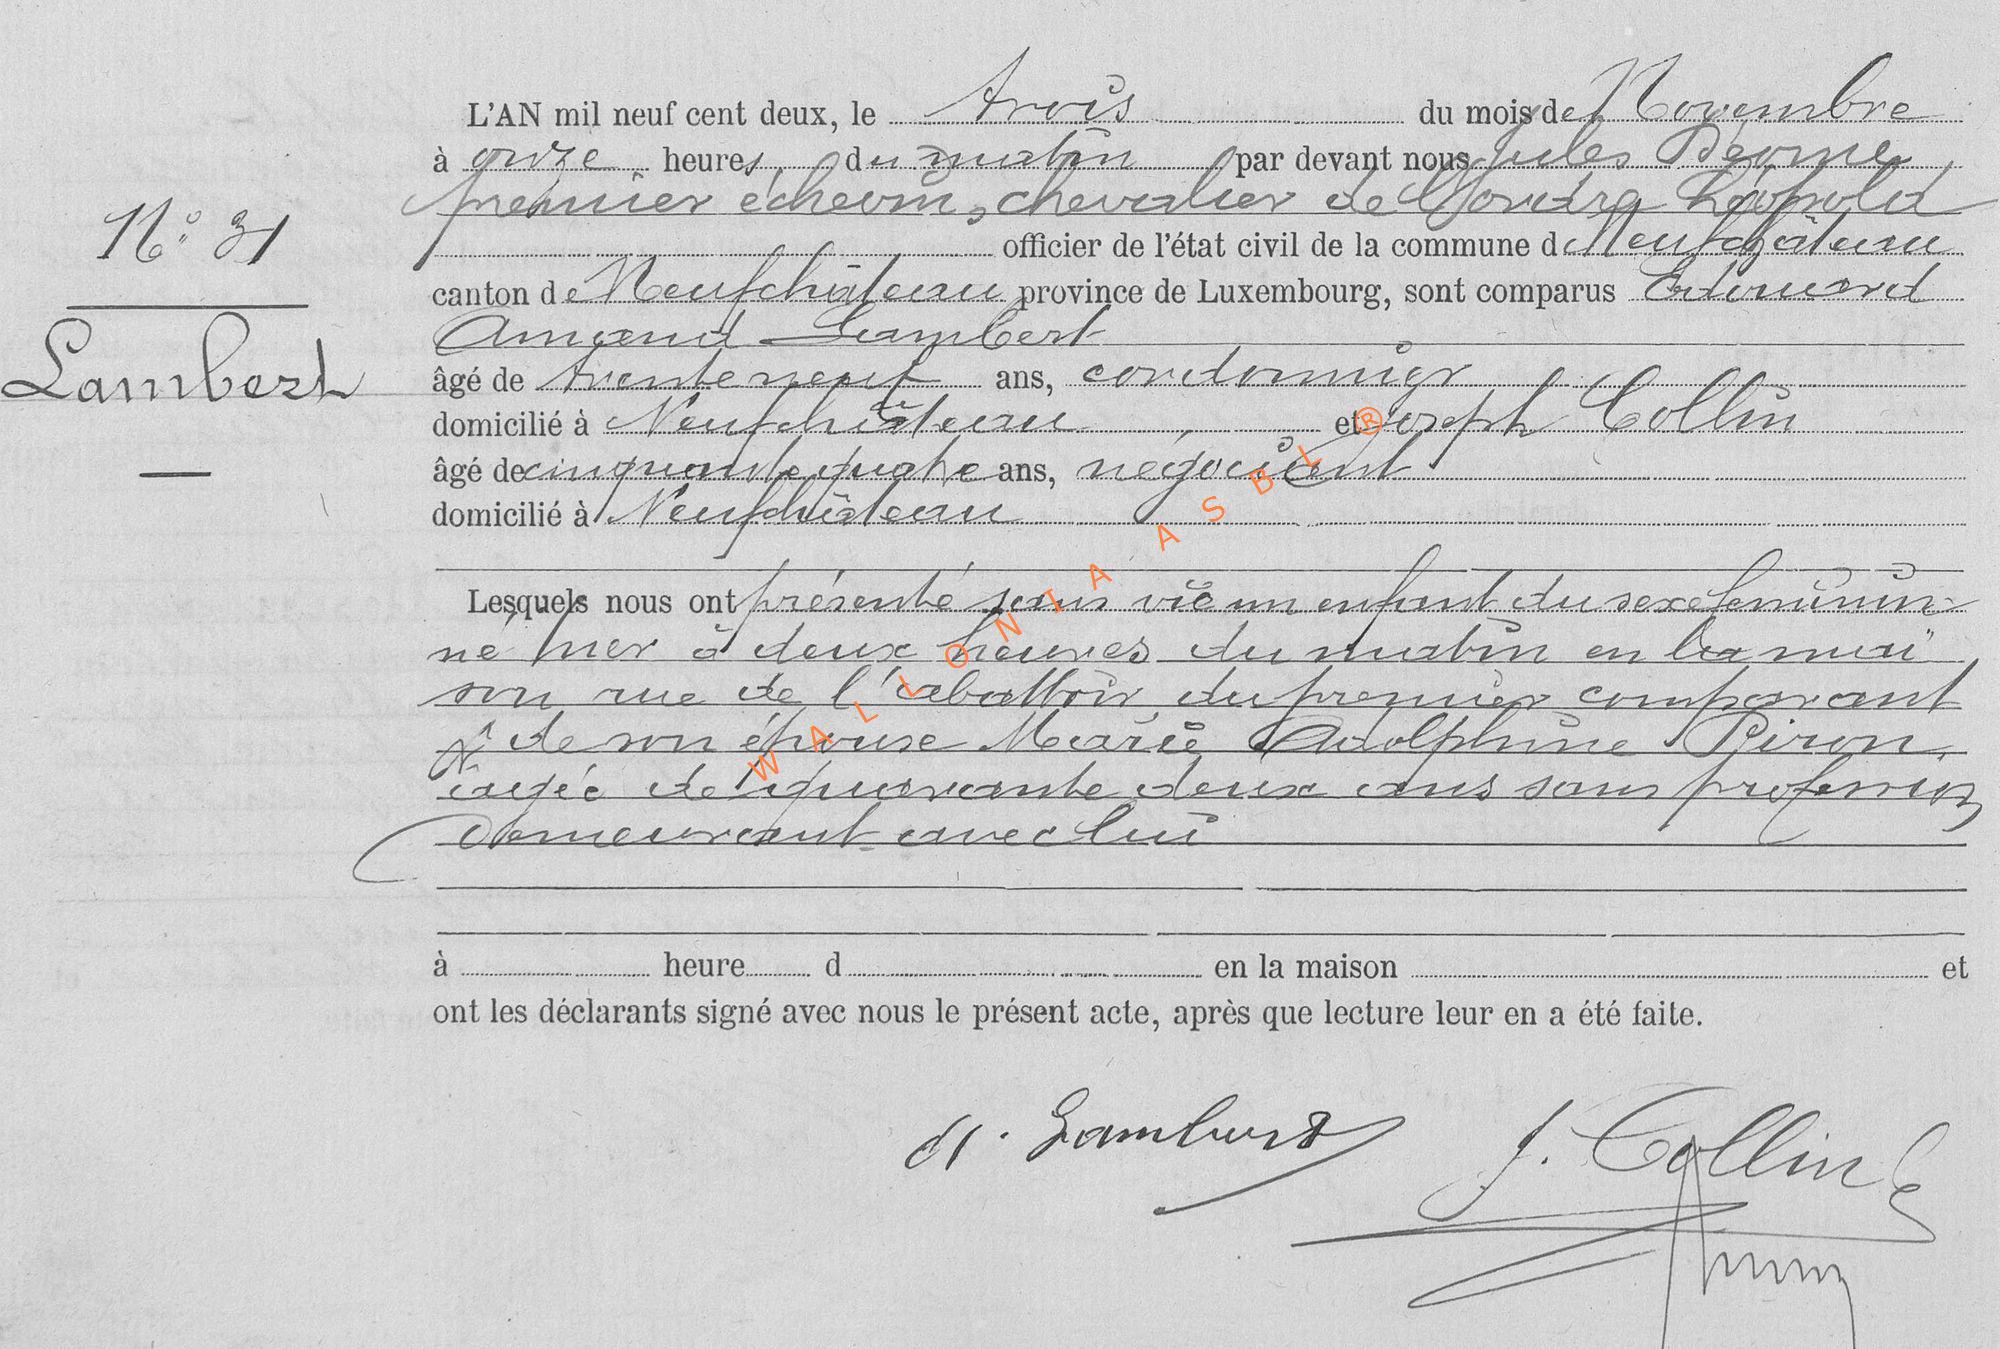 L'AN mil neuf cent deux, le trois du mois de Novembre
à onze heures, du matin par devant nous Jules
premier échevin, chevalier de l'ordre Léopold
officier de l'état civil de la commune de Neufchâteau
N° 31
canton de Neufchâteau province de Luxembourg, sont comparus Edouard
Amand Lambert
Lambert
âgé de trente neuf ans, cordonnier
domicilié à Neufchâteau, et Joseph Collin
âgé de cinquante quatre ans, négociant
domicilié à Neufchâteau
Lesquels nous ont présenté sans vie un enfant du sexe féminin
né hier à deux heures du matin en la mai
son rue de l'abattoir, du premier comparant
& de son épouse Marie Adolphine Piron,
âgée de quarante deux ans sans profession
demeurant avec lui
à heure d en la maison et
ont les déclarants signé avec nous le présent acte, après que lecture leur en a été faite.
Lambert
J. Collin
WALLONIA ASBL ®